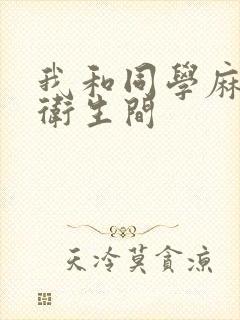 我和同學麻
衛生間
天冷莫貪涼